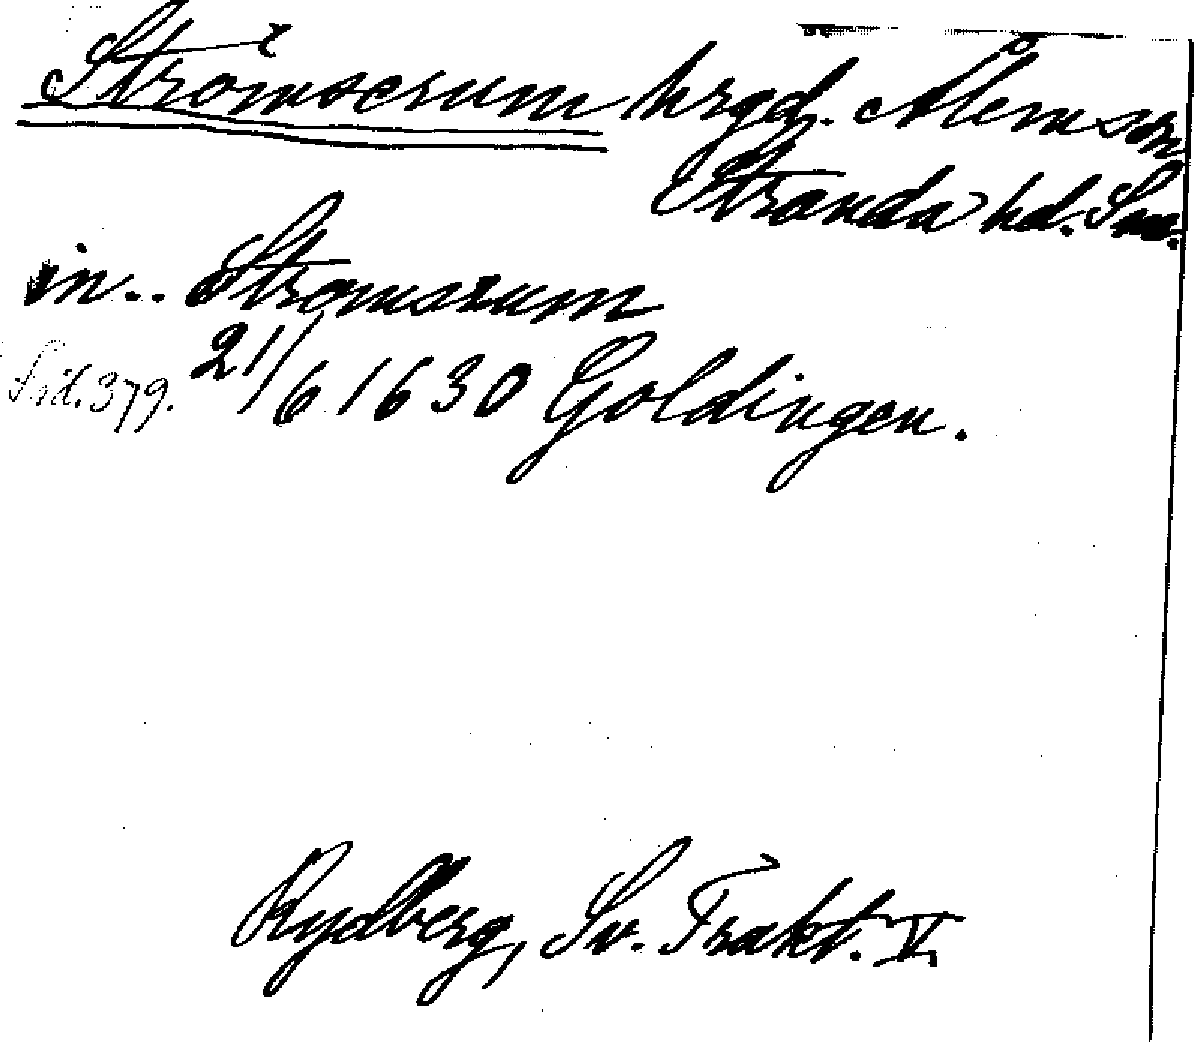 Strömserum hrgd. Ålems sn
Stranda hd. Sm.
in.. Stromsrum
Sid. 379. 21/6 1630 Goldingen.
Rydberg, Sv. Trakt. V.